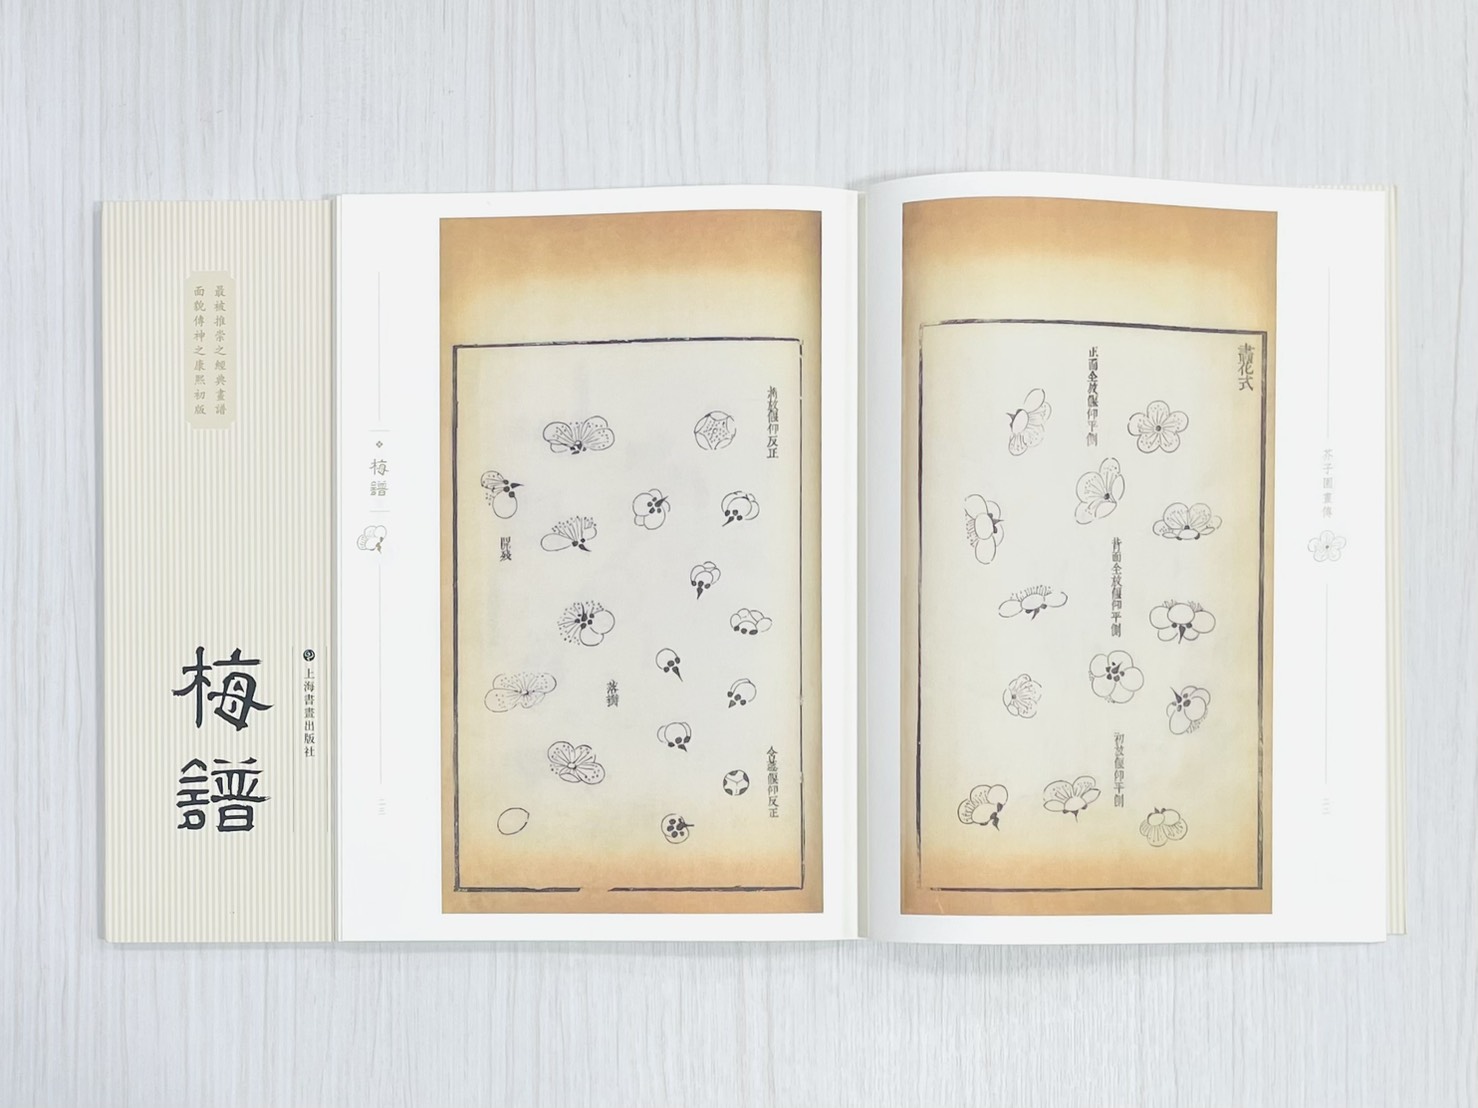 最被推崇之經典畫譜
面貌傳神之康熙初版
梅譜
上海書畫出版社
芥子園畫傳
二二
畫花式
正面全放偃仰平側
背面全放偃仰平側
初放偃仰平側
將放偃仰反正
含蕊偃仰反正
開殘
落瓣
梅譜
二三